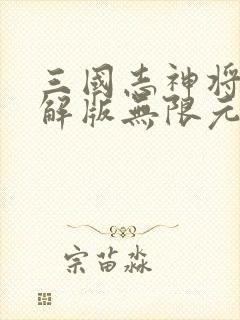 三國志神將
解版無限元
宗苗淼